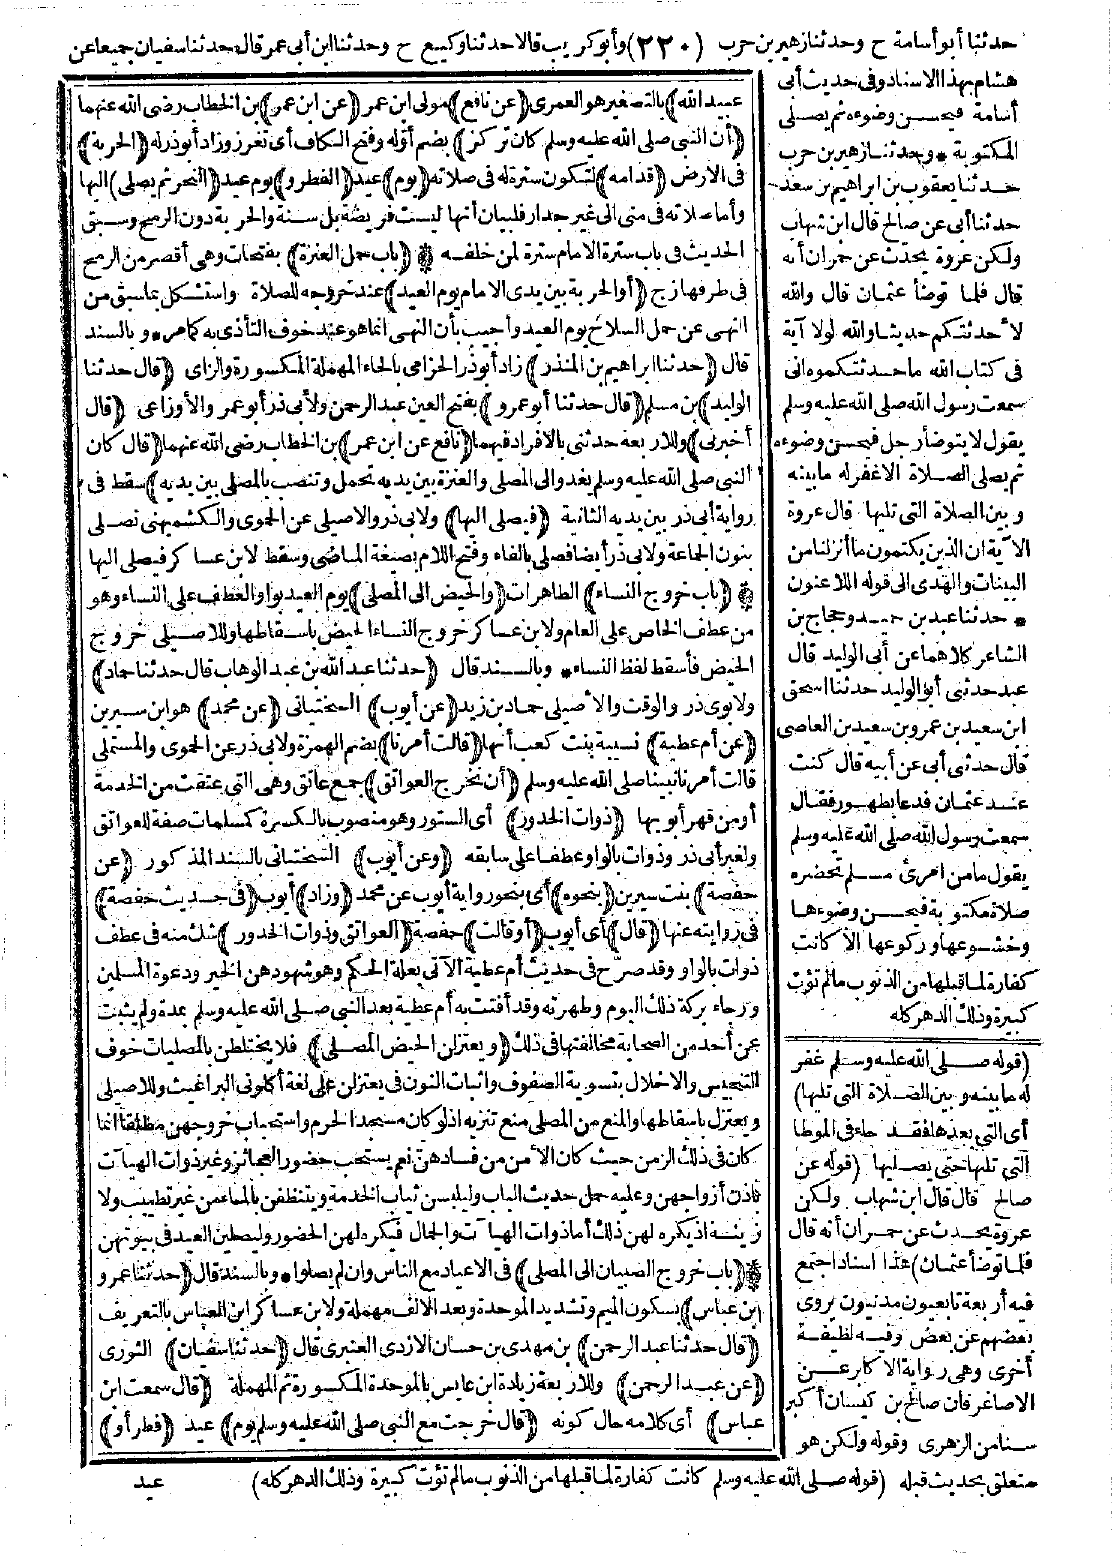 حدثنا أبو أسامة ح وحدثنا زهير بن حرب (٢٢٠) وأبو كريب قالا حدثنا وكيع ح وحدثنا ابن أبي عمر قال حدثنا سفيان جميعا عن
هشام بهذا الاسناد وفي حديث أبي
أسامة فيحسن وضوءه ثم يصلي
المكتوبة * وحدثنا زهير بن حرب
حدثنا يعقوب بن ابراهيم بن سعد
حدثنا أبي عن صالح قال ابن شهاب
ولكن عروة يحدث عن حمران أنه
قال فلما توضأ عثمان قال والله
لأحدثنكم حديثا والله لولا آية
في كتاب الله ما حدثتكموه اني
سمعت رسول الله صلى الله عليه وسلم
يقول لا يتوضأ رجل فيحسن وضوءه
ثم يصلي الصلاة الا غفر له ما بينه
وبين الصلاة التي تليها قال عروة
الآية ان الذين يكتمون ما أنزلنا من
البينات والهدى الى قوله اللاعنون
* حدثنا عبد بن حميد وحجاج بن
الشاعر كلاهما عن أبي الوليد قال
عبد حدثني أبو الوليد حدثنا اسحق
ابن سعيد بن عمرو بن سعيد بن العاصي
قال حدثني أبي عن أبيه قال كنت
عند عثمان فدعا بطهور فقال
سمعت رسول الله صلى الله عليه وسلم
يقول ما من امرئ مسلم تحضره
صلاة مكتوبة فيحسن وضوءها
وخشوعها وركوعها الا كانت
كفارة لما قبلها من الذنوب ما لم تؤت
كبيرة وذلك الدهر كله
(قوله صلى الله عليه وسلم غفر
له ما بينه وبين الصلاة التي تليها)
أي التي بعدها فقد جاء في الموطا
التي تليها حتى يصليها (قوله عن
صالح قال قال ابن شهاب ولكن
عروة يحدث عن حمران أنه قال
فلما توضأ عثمان) هذا اسناد اجتمع
فيه أربعة تابعيون مدنيون يروي
بعضهم عن بعض وفيه لطيفة
أخرى وهي رواية الاكابر عن
الاصاغر فان صالح بن كيسان أكبر
سنا من الزهري وقوله ولكن هو
متعلق بحديث قبله (قوله صلى الله عليه وسلم كانت كفارة لما قبلها من الذنوب ما لم تؤت كبيرة وذلك الدهر كله)
عبيد الله) بالتصغير هو العمري (عن نافع) مولى ابن عمر (عن ابن عمر) بن الخطاب رضى الله عنهما
(أن النبي صلى الله عليه وسلم كان تركز) بضم أوله وفتح الكاف أي تغرز وزاد أبو ذر له (الحربة)
في الارض (قدامه) لتكون سترة له في صلاته (يوم) عيد (الفطر و) يوم عيد (النحر ثم يصلي) اليها
وأما صلاته في منى الى غير جدار فلبيان أنها ليست فريضة بل سنة والحربة دون الرمح وسبق
الحديث في باب سترة الامام سترة لمن خلفه * (باب حمل العنزة) بفتحات وهي أقصر من الرمح
في طرفها زج (أو الحربة بين يدى الامام يوم العيد) عند خروجه للصلاة واستشكل بما سبق من
النهى عن حمل السلاح يوم العيد وأجيب بأن النهى انما هو عند خوف التأذي به كما مر * وبالسند
قال (حدثنا ابراهيم بن المنذر) زاد أبو ذر الحزامي بالحاء المهملة المكسورة والزاي (قال حدثنا
الوليد) بن مسلم (قال حدثنا أبو عمرو) بفتح العين عبد الرحمن ولأبي ذر أبو عمر والأوزاعي (قال
أخبرني) وللاربعة حدثني بالافراد فيهما (نافع عن ابن عمر) بن الخطاب رضى الله عنهما (قال كان
النبي صلى الله عليه وسلم يغدو الى المصلى والعنزة بين يديه تحمل وتنصب بالمصلى بين يديه) سقط في
رواية أبي ذر بين يديه الثانية (فيصلي اليها) ولابي ذر والاصيلي عن الحموى والكشميهني نصلى
بنون الجماعة ولابي ذر أيضا فصلى بالفاء وفتح اللام بصيغة الماضى وسقط لابن عساكر فيصلي اليها
* (باب خروج النساء) الطاهرات (والحيض الى المصلى) يوم العيد بواو العطف على النساء وهو
من عطف الخاص على العام ولابن عساكر خروج النساء الحيض باسقاطها وللاصيلى خروج
الحيض فأسقط لفظ النساء * وبالسند قال (حدثنا عبد الله بن عبد الوهاب قال حدثنا حماد)
ولابوى ذر والوقت والأصيلي حماد بن زيد (عن أيوب) السختياني (عن محمد) هو ابن سيرين
(عن أم عطية) نسيبة بنت كعب أنها (قالت أمرنا) بضم الهمزة ولابي ذر عن الحموى والمستملى
قالت أمرنا نبينا صلى الله عليه وسلم (أن نخرج العواتق) جمع عاتق وهي التي عتقت من الخدمة
أو من قهر أبويها (ذوات الخدور) أي الستور وهو منصوب بالكسرة كمسلمات صفة للعواتق
ولغير أبي ذر وذوات بالواو عطفا على سابقه (وعن أيوب) السختياني بالسند المذكور (عن
حفصة) بنت سيرين (بنحوه) أي بنحو رواية أيوب عن محمد (وزاد) أيوب (في حديث حفصة)
في روايته عنها (قال) أي أيوب (أو قالت) حفصة (العواتق وذوات الخدور) شك منه في عطف
ذوات بالواو وقد صرح في حديث أم عطية الآتي بعلة الحكم وهو شهودهن الخير ودعوة المسلمين
ورجاء بركة ذلك اليوم وطهرته وقد أفتت به أم عطية بعد النبي صلى الله عليه وسلم بمدة ولم يثبت
عن أحد من الصحابة مخالفتها في ذلك (ويعتزلن الحيض المصلى) فلا يختلطن بالمصليات خوف
التنجيس والاخلال بتسوية الصفوف واثبات النون في يعتزلن على لغة أكلوني البراغيث وللاصيلي
ويعتزل باسقاطها والمنع من المصلى منع تنزيه اذ لو كان مسجدا لحرم واستحباب خروجهن مطلقا انما
كان في ذلك الزمن حيث كان الأمن من فسادهن نعم يستحب حضور العجائز وغير ذوات الهيآت
باذن أزواجهن وعليه حمل حديث الباب وليلبسن ثياب الخدمة ويتنظفن بالماء من غير تطيب ولا
زينة اذ يكره لهن ذلك أما ذوات الهيآت والجمال فيكره لهن الحضور وليصلين العيد في بيوتهن
* (باب خروج الصبيان الى المصلى) في الاعياد مع الناس وان لم يصلوا * وبالسند قال (حدثنا عمرو
ابن عباس) بسكون الميم وتشديد الموحدة وبعد الالف مهملة ولابن عساكر ابن العباس بالتعريف
(قال حدثنا عبد الرحمن) بن مهدى بن حسان الازدى العنبرى قال (حدثنا سفيان) الثورى
(عن عبد الرحمن) وللاربعة زيادة ابن عابس بالموحدة المكسورة ثم المهملة (قال سمعت ابن
عباس) أي كلامه حال كونه (قال خرجت مع النبي صلى الله عليه وسلم يوم) عيد (فطر أو)
عيد